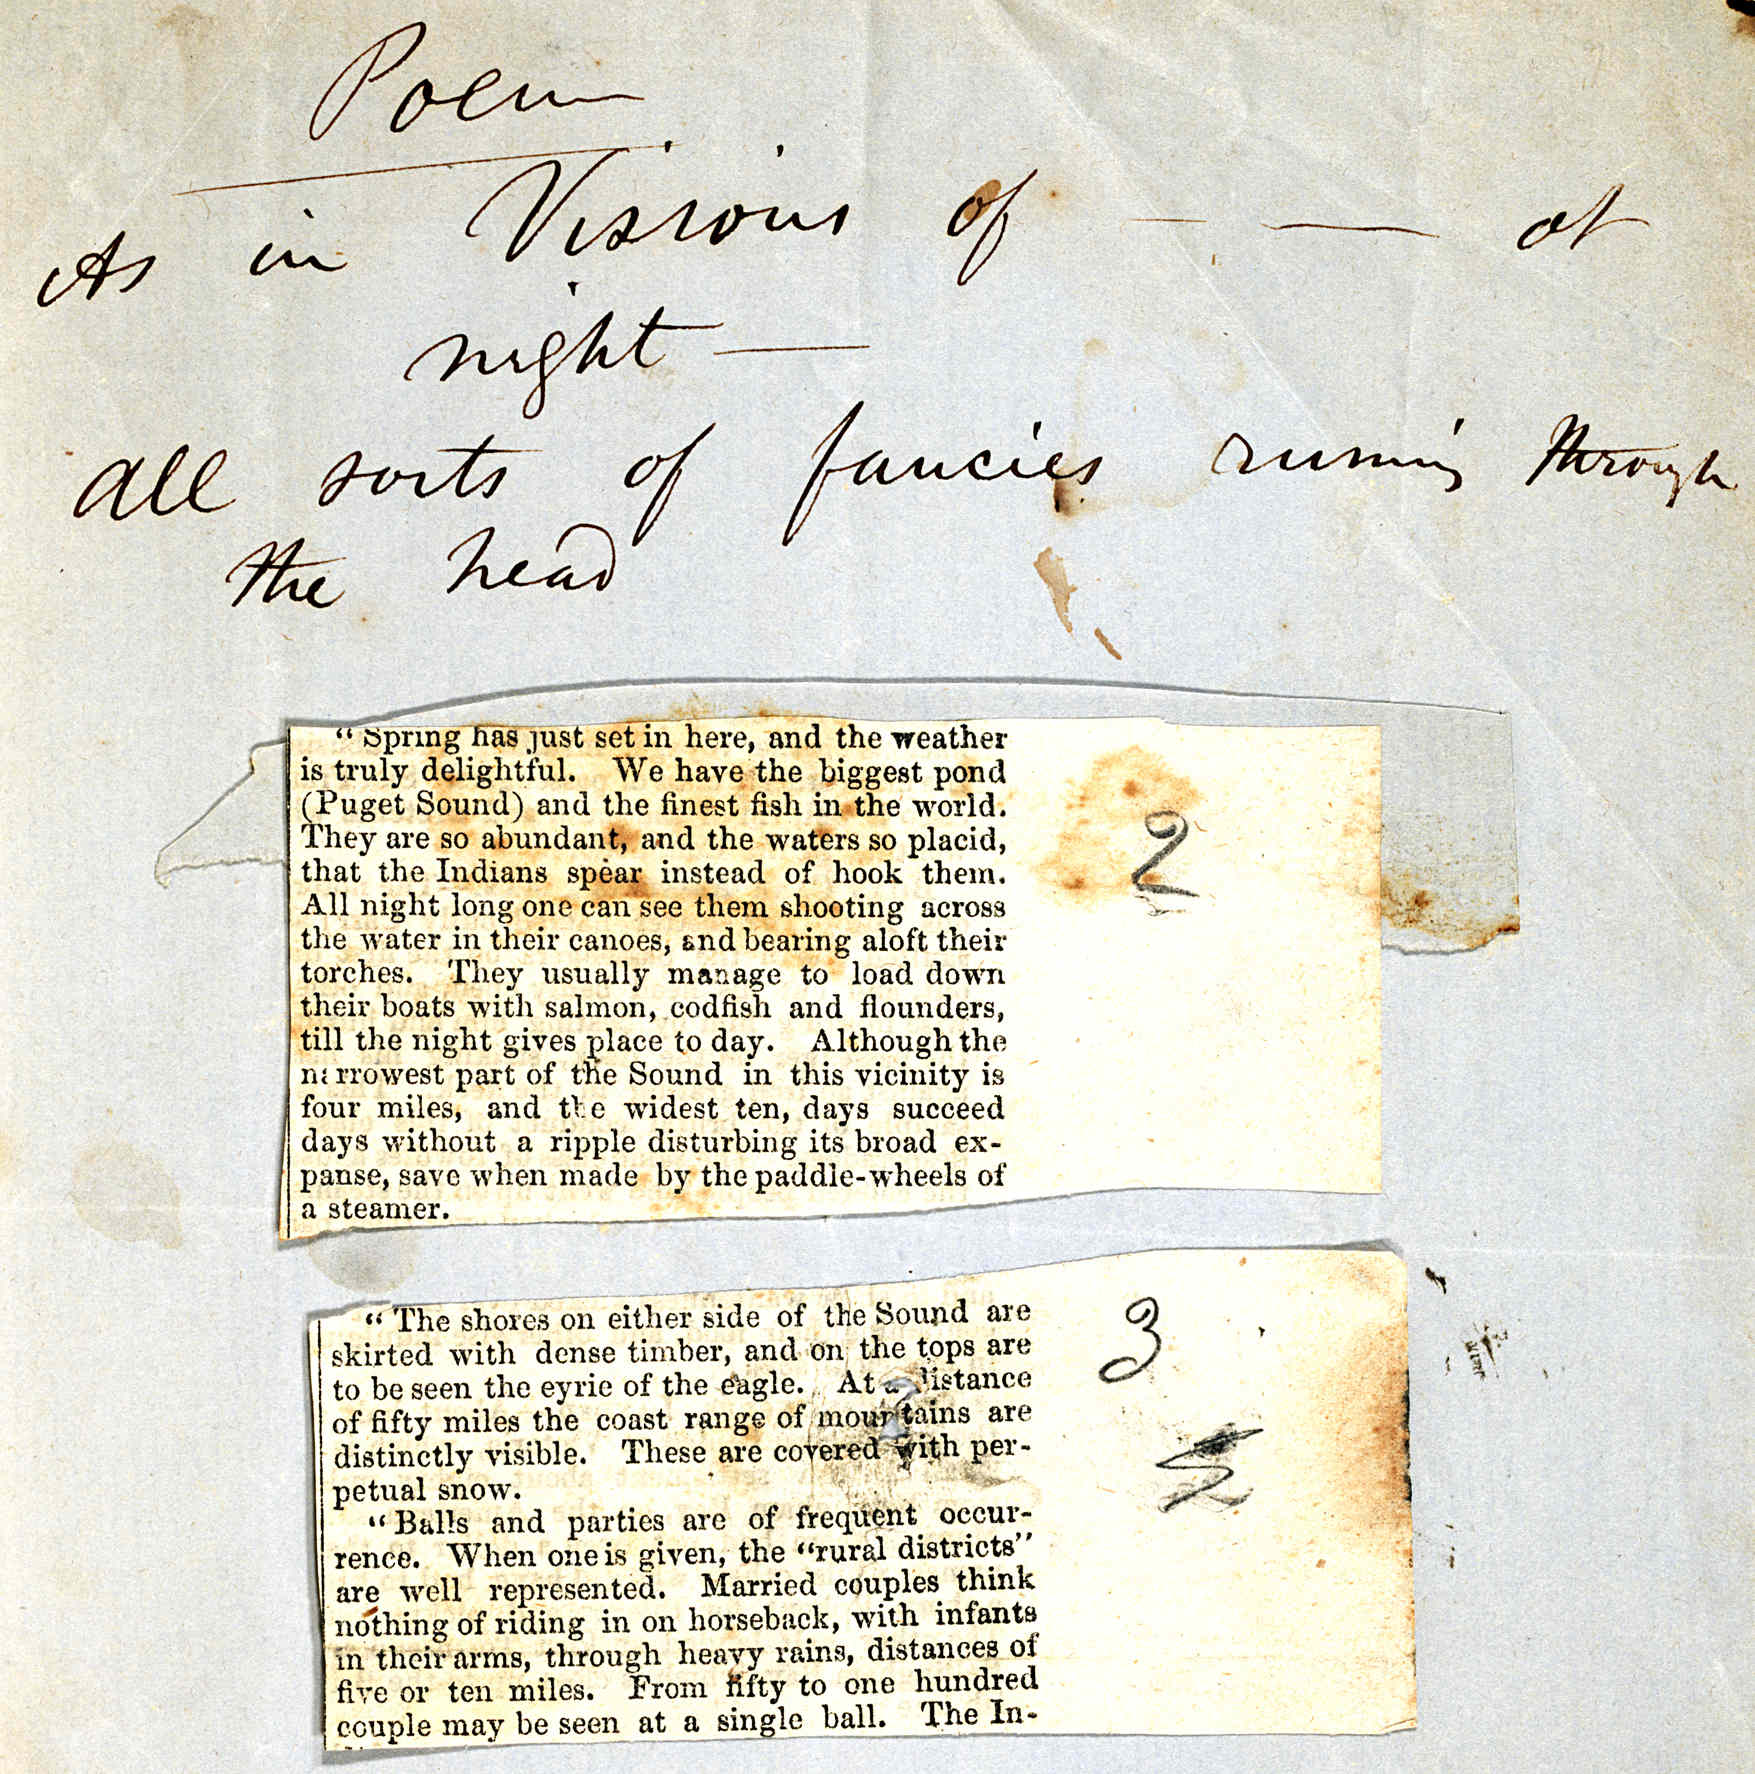 Poem
As in Visions of — — at
night —
All sorts of fancies runing through
the head
" Spring has just set in here, and the weather
is truly delightful. We have the biggest pond
(Puget Sound) and the finest fish in the world.
They are so abundant, and the waters so placid,
that the Indians spear instead of hook them.
All night long one can see them shooting across
the water in their canoes, and bearing aloft their
torches. They usually manage to load down
their boats with salmon, codfish and flounders,
till the night gives place to day. Although the
narrowest part of the Sound in this vicinity is
four miles, and the widest ten, days succeed
days without a ripple disturbing its broad ex-
panse, save when made by the paddle-wheels of
a steamer.
2
" The shores on either side of the Sound are
skirted with dense timber, and on the tops are
to be seen the eyrie of the eagle. At a distance
of fifty miles the coast range of mountains are
distinctly visible. These are covered with per-
petual snow.
" Balls and parties are of frequent occur-
rence. When one is given, the "rural districts"
are well represented. Married couples think
nothing of riding in on horseback, with infants
in their arms, through heavy rains, distances of
five or ten miles. From fifty to one hundred
couple may be seen at a single ball. The In-
3
2